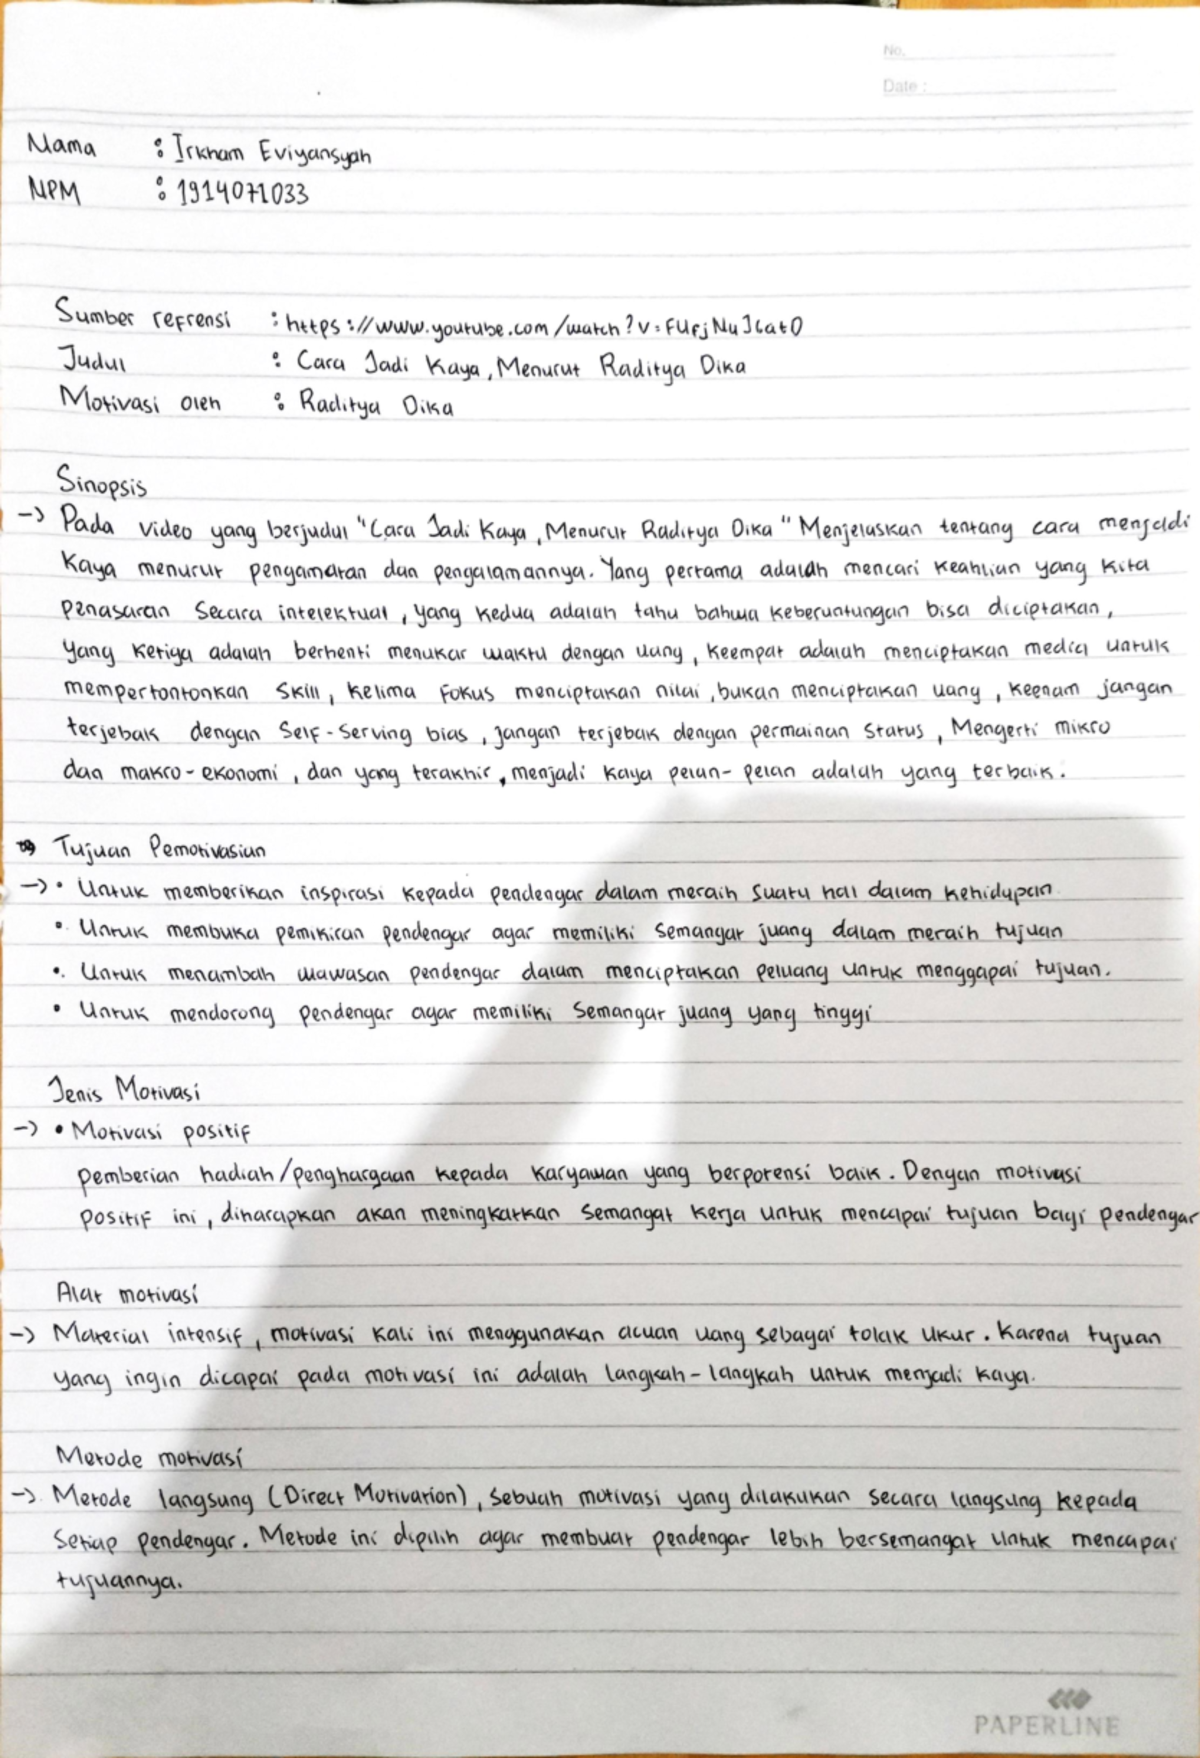 No.
Date :
Nama : Irkham Eviyansyah
NPM : 1914071033
Sumber refrensi : https://www.youtube.com/watch?v=
Judul : Cara Jadi Kaya, Menurut Raditya Dika
Motivasi oleh : Raditya Dika
Sinopsis
-> Pada video yang berjudul "Cara Jadi Kaya, Menurut Raditya Dika" Menjelaskan tentang cara menjadi
kaya menurut pengamatan dan pengalamannya. Yang pertama adalah mencari keahlian yang kita
penasaran secara intelektual, yang kedua adalah tahu bahwa keberuntungan bisa diciptakan,
yang ketiga adalah berhenti menukar waktu dengan uang, keempat adalah menciptakan media untuk
mempertontonkan skill, kelima fokus menciptakan nilai, bukan menciptakan uang, keenam jangan
terjebak dengan Self-Serving bias, jangan terjebak dengan permainan status, Mengerti mikro
dan makro-ekonomi, dan yang terakhir, menjadi kaya pelan-pelan adalah yang terbaik.
Tujuan Pemotivasian
-> • Untuk memberikan inspirasi kepada pendengar dalam meraih suatu hal dalam kehidupan.
• Untuk membuka pemikiran pendengar agar memiliki semangat juang dalam meraih tujuan
• Untuk menambah wawasan pendengar dalam menciptakan peluang untuk menggapai tujuan.
• Untuk mendorong pendengar agar memiliki semangat juang yang tinggi
Jenis Motivasi
-> • Motivasi positif
pemberian hadiah/penghargaan kepada karyawan yang berpotensi baik. Dengan motivasi
positif ini, diharapkan akan meningkatkan semangat kerja untuk mencapai tujuan bagi pendengar
Alat motivasi
-> Material intensif, motivasi kali ini menggunakan acuan uang sebagai tolak ukur. Karena tujuan
yang ingin dicapai pada motivasi ini adalah langkah-langkah untuk menjadi kaya.
Metode motivasi
-> Metode langsung (Direct Motivation), sebuah motivasi yang dilakukan secara langsung kepada
setiap pendengar. Metode ini dipilih agar membuat pendengar lebih bersemangat untuk mencapai
tujuannya.
PAPERLINE